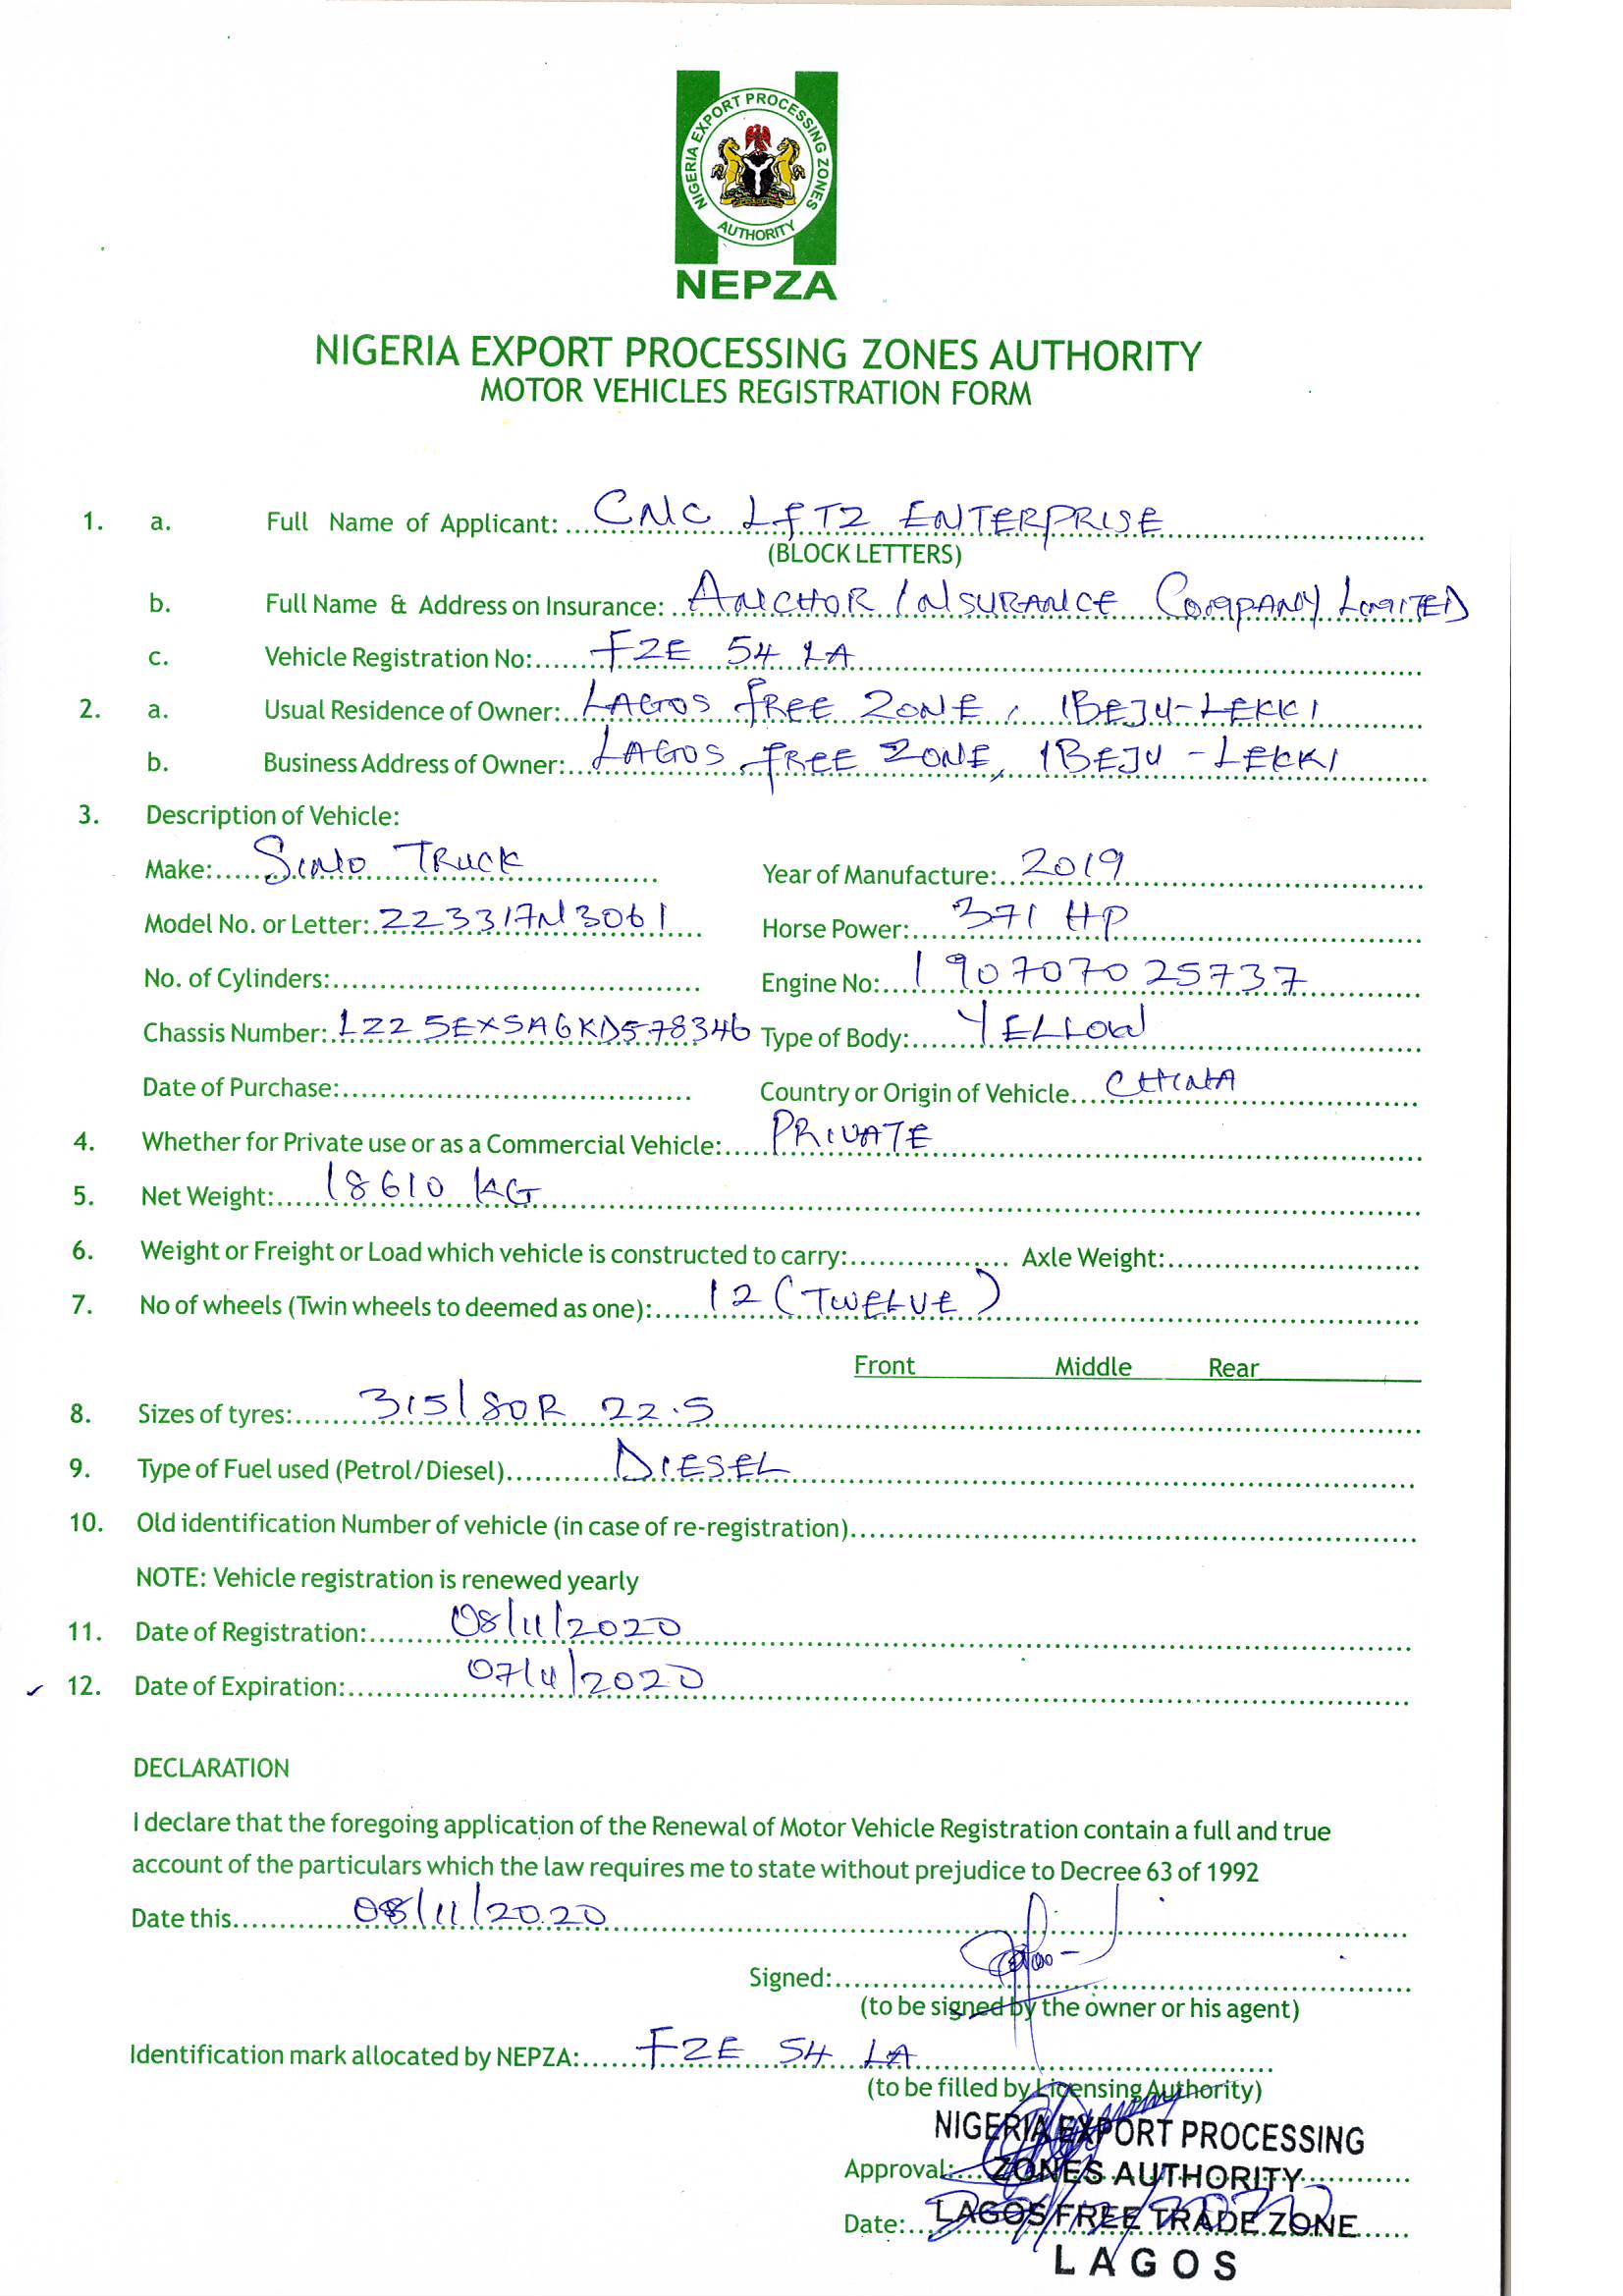 NIGERIA EXPORT PROCESSING ZONES AUTHORITY
NEPZA
NIGERIA EXPORT PROCESSING ZONES AUTHORITY
MOTOR VEHICLES REGISTRATION FORM
1. a. Full Name of Applicant: CNC LFTZ ENTERPRISE
(BLOCK LETTERS)
b. Full Name & Address on Insurance: ANCHOR INSURANCE COMPANY LIMITED
c. Vehicle Registration No: FZE 54 LA
2. a. Usual Residence of Owner: LAGOS FREE ZONE, IBEJU-LEKKI
b. Business Address of Owner: LAGOS FREE ZONE, IBEJU-LEKKI
3. Description of Vehicle:
Make: SINO TRUCK Year of Manufacture: 2019
Model No. or Letter: ZZ3317N3061 Horse Power: 371 HP
No. of Cylinders: Engine No: 190707025737
Chassis Number: LZZ5EXSA6KD578346 Type of Body: YELLOW
Date of Purchase: Country or Origin of Vehicle CHINA
4. Whether for Private use or as a Commercial Vehicle: PRIVATE
5. Net Weight: 18610 KG
6. Weight or Freight or Load which vehicle is constructed to carry: Axle Weight:
7. No of wheels (Twin wheels to deemed as one): 12 (TWELVE)
Front Middle Rear
8. Sizes of tyres: 315/80R 22.5
9. Type of Fuel used (Petrol/Diesel) DIESEL
10. Old identification Number of vehicle (in case of re-registration)
NOTE: Vehicle registration is renewed yearly
11. Date of Registration: 08/11/2020
12. Date of Expiration: 07/11/2020
DECLARATION
I declare that the foregoing application of the Renewal of Motor Vehicle Registration contain a full and true
account of the particulars which the law requires me to state without prejudice to Decree 63 of 1992
Date this 08/11/2020
Signed:
(to be signed by the owner or his agent)
Identification mark allocated by NEPZA: FZE 54 LA
(to be filled by Licensing Authority)
NIGERIA EXPORT PROCESSING
Approval: ZONES AUTHORITY
Date: LAGOS FREE TRADE ZONE
LAGOS